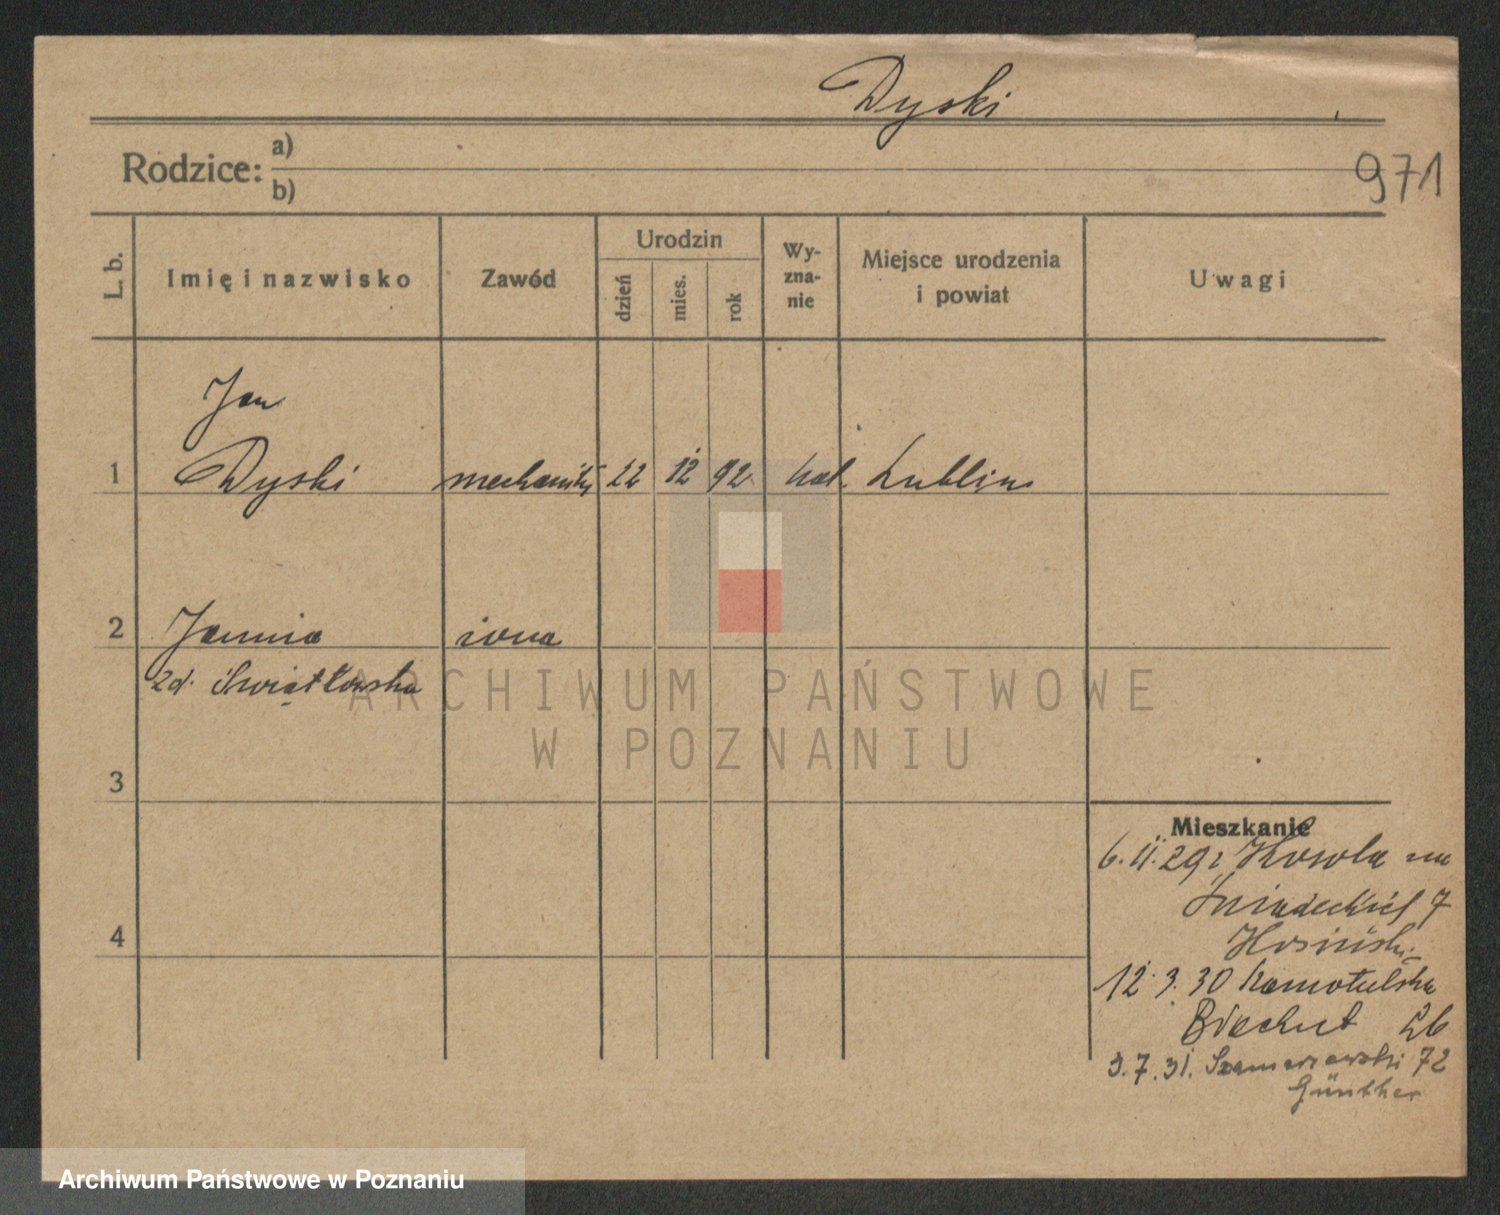 Dyski
Rodzice: a)
b)
971
L. b.
Imię i nazwisko
Zawód
Urodzin
dzień
mies.
rok
Wy-
zna-
nie
Miejsce urodzenia
i powiat
Uwagi
Jan
1 Dyski mechanik 22 12 92 kat. Lublin
2 Janina żona
zd. Świątkowska
3
4
Mieszkanie
6. 11. 29 z na
Śniadeckich 7
12. 3. 30
26
3. 7. 31. 72
Günther
ARCHIWUM PAŃSTWOWE
W POZNANIU
Archiwum Państwowe w Poznaniu